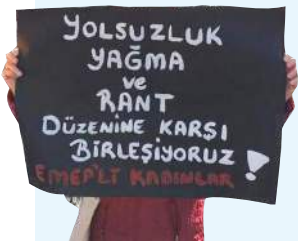 YOLSUZLUK
YAĞMA
ve
RANT
DÜZENİNE KARŞI
BİRLEŞİYORUZ !
EMEP'Lİ KADINLAR